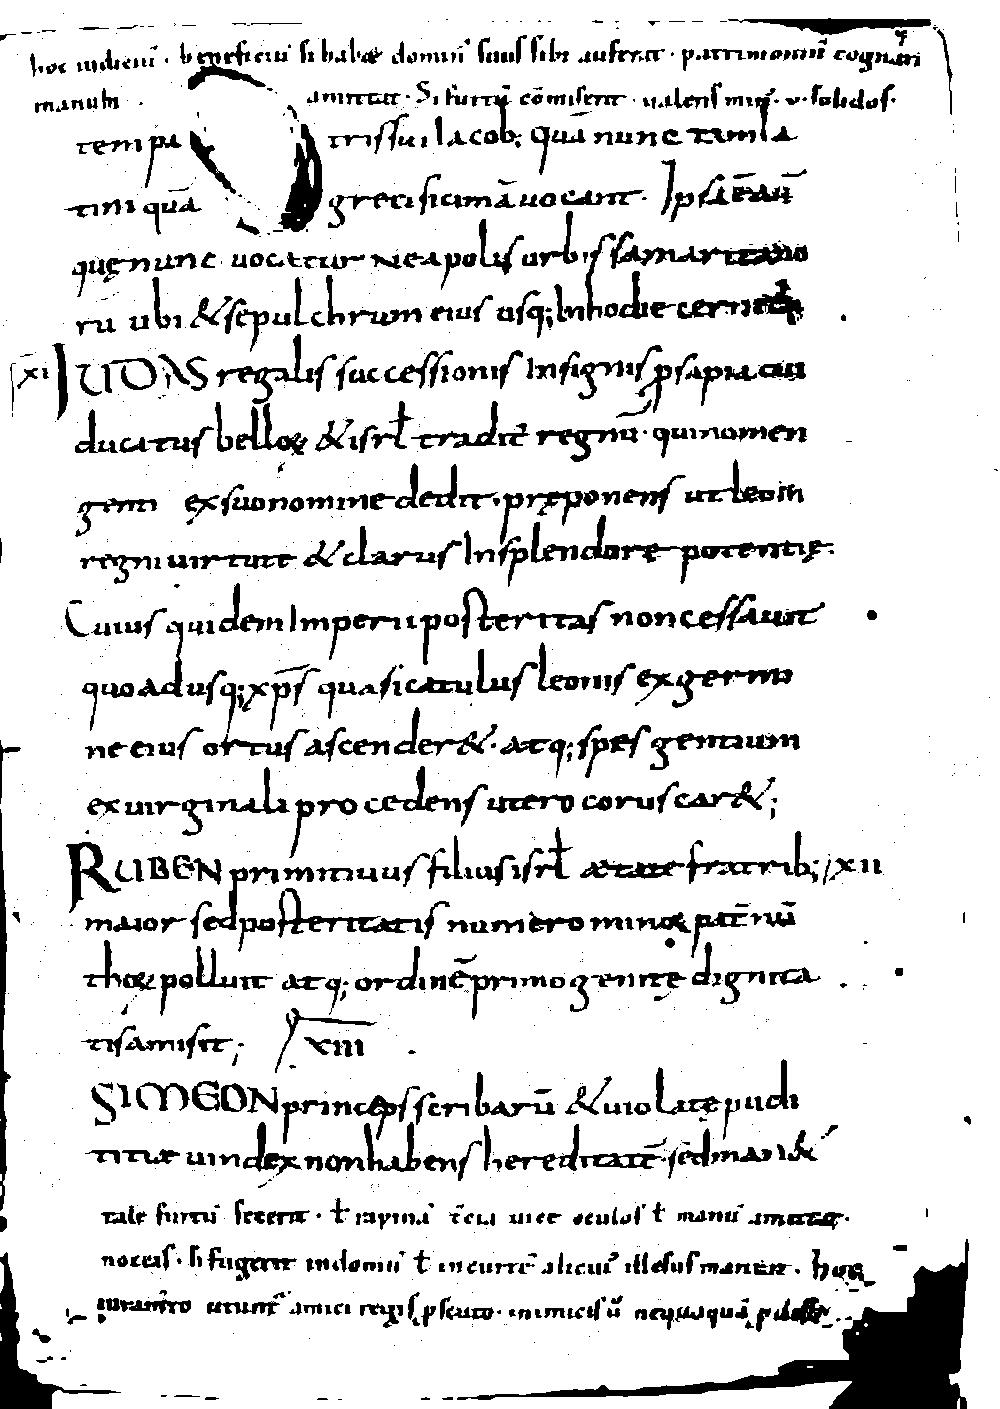 hoc indiciū · beneficiū si habæ dominꝰ suus sibi auferat · patrimoniū cognati
manuū · amittat · Si furtū cōmiserit · ualens · v · solidos ·
tem pa trissui Iacob; Quā nunc
tini quā greci sicimā uocant · Ipsa ē
quę nunc uocatur Neapolis urbis samaritano
rū ubi & sepulchrum eius usq; In hodie
XI IUDAS regalis successionis Insignis ꝓsapia cui
ducatus belloꝝ & isrł tradit regnū · qui nomen
genti ex suo nomine dedit · pręponens ut leo in
regni uirtute & clarus In splendore potentię ·
Cuius quidem Imperii posteritas non cessauit
quo ad usq; xp̄s quasi catulus leonis ex germi
ne eius ortus ascender& · atq; spes gentium
ex uirginali procedens utero coruscar&;
RUBEN primitiuus filius isrł ætate fratrib; XII
maior sed posteritatis numero minoꝝ pat̄nū
thoꝝ polluit atq; ordinē primogenitę dignita
tis amisit; XIII
SIMEON princeps scribarū & uiolatę pudi
titiæ uindex non habens hereditatē · sed man&
tale furtū fecerit · ł rapinā uice oculos ł manū
noceas · si fugerit in domū ł in curtē alicuiꝰ illesus maneat ·
utunt̄ amici regis · inimicis ū nequaquā